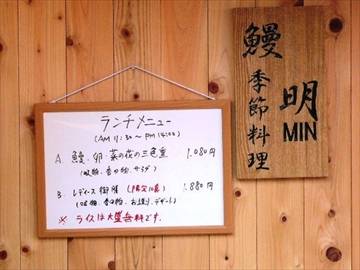 ランチメニュー
(AM 11:30 ~ PM 14:00)
A. 鰻・卵・菜の花の三色重 1.080円
(吸物、香の物、サラダ)
B. レディース御膳 (限定10食) 1.880円
(吸物、香の物、お造り、デザート)
※ ライスは大盛無料です。
鰻 季節料理
明
MIN